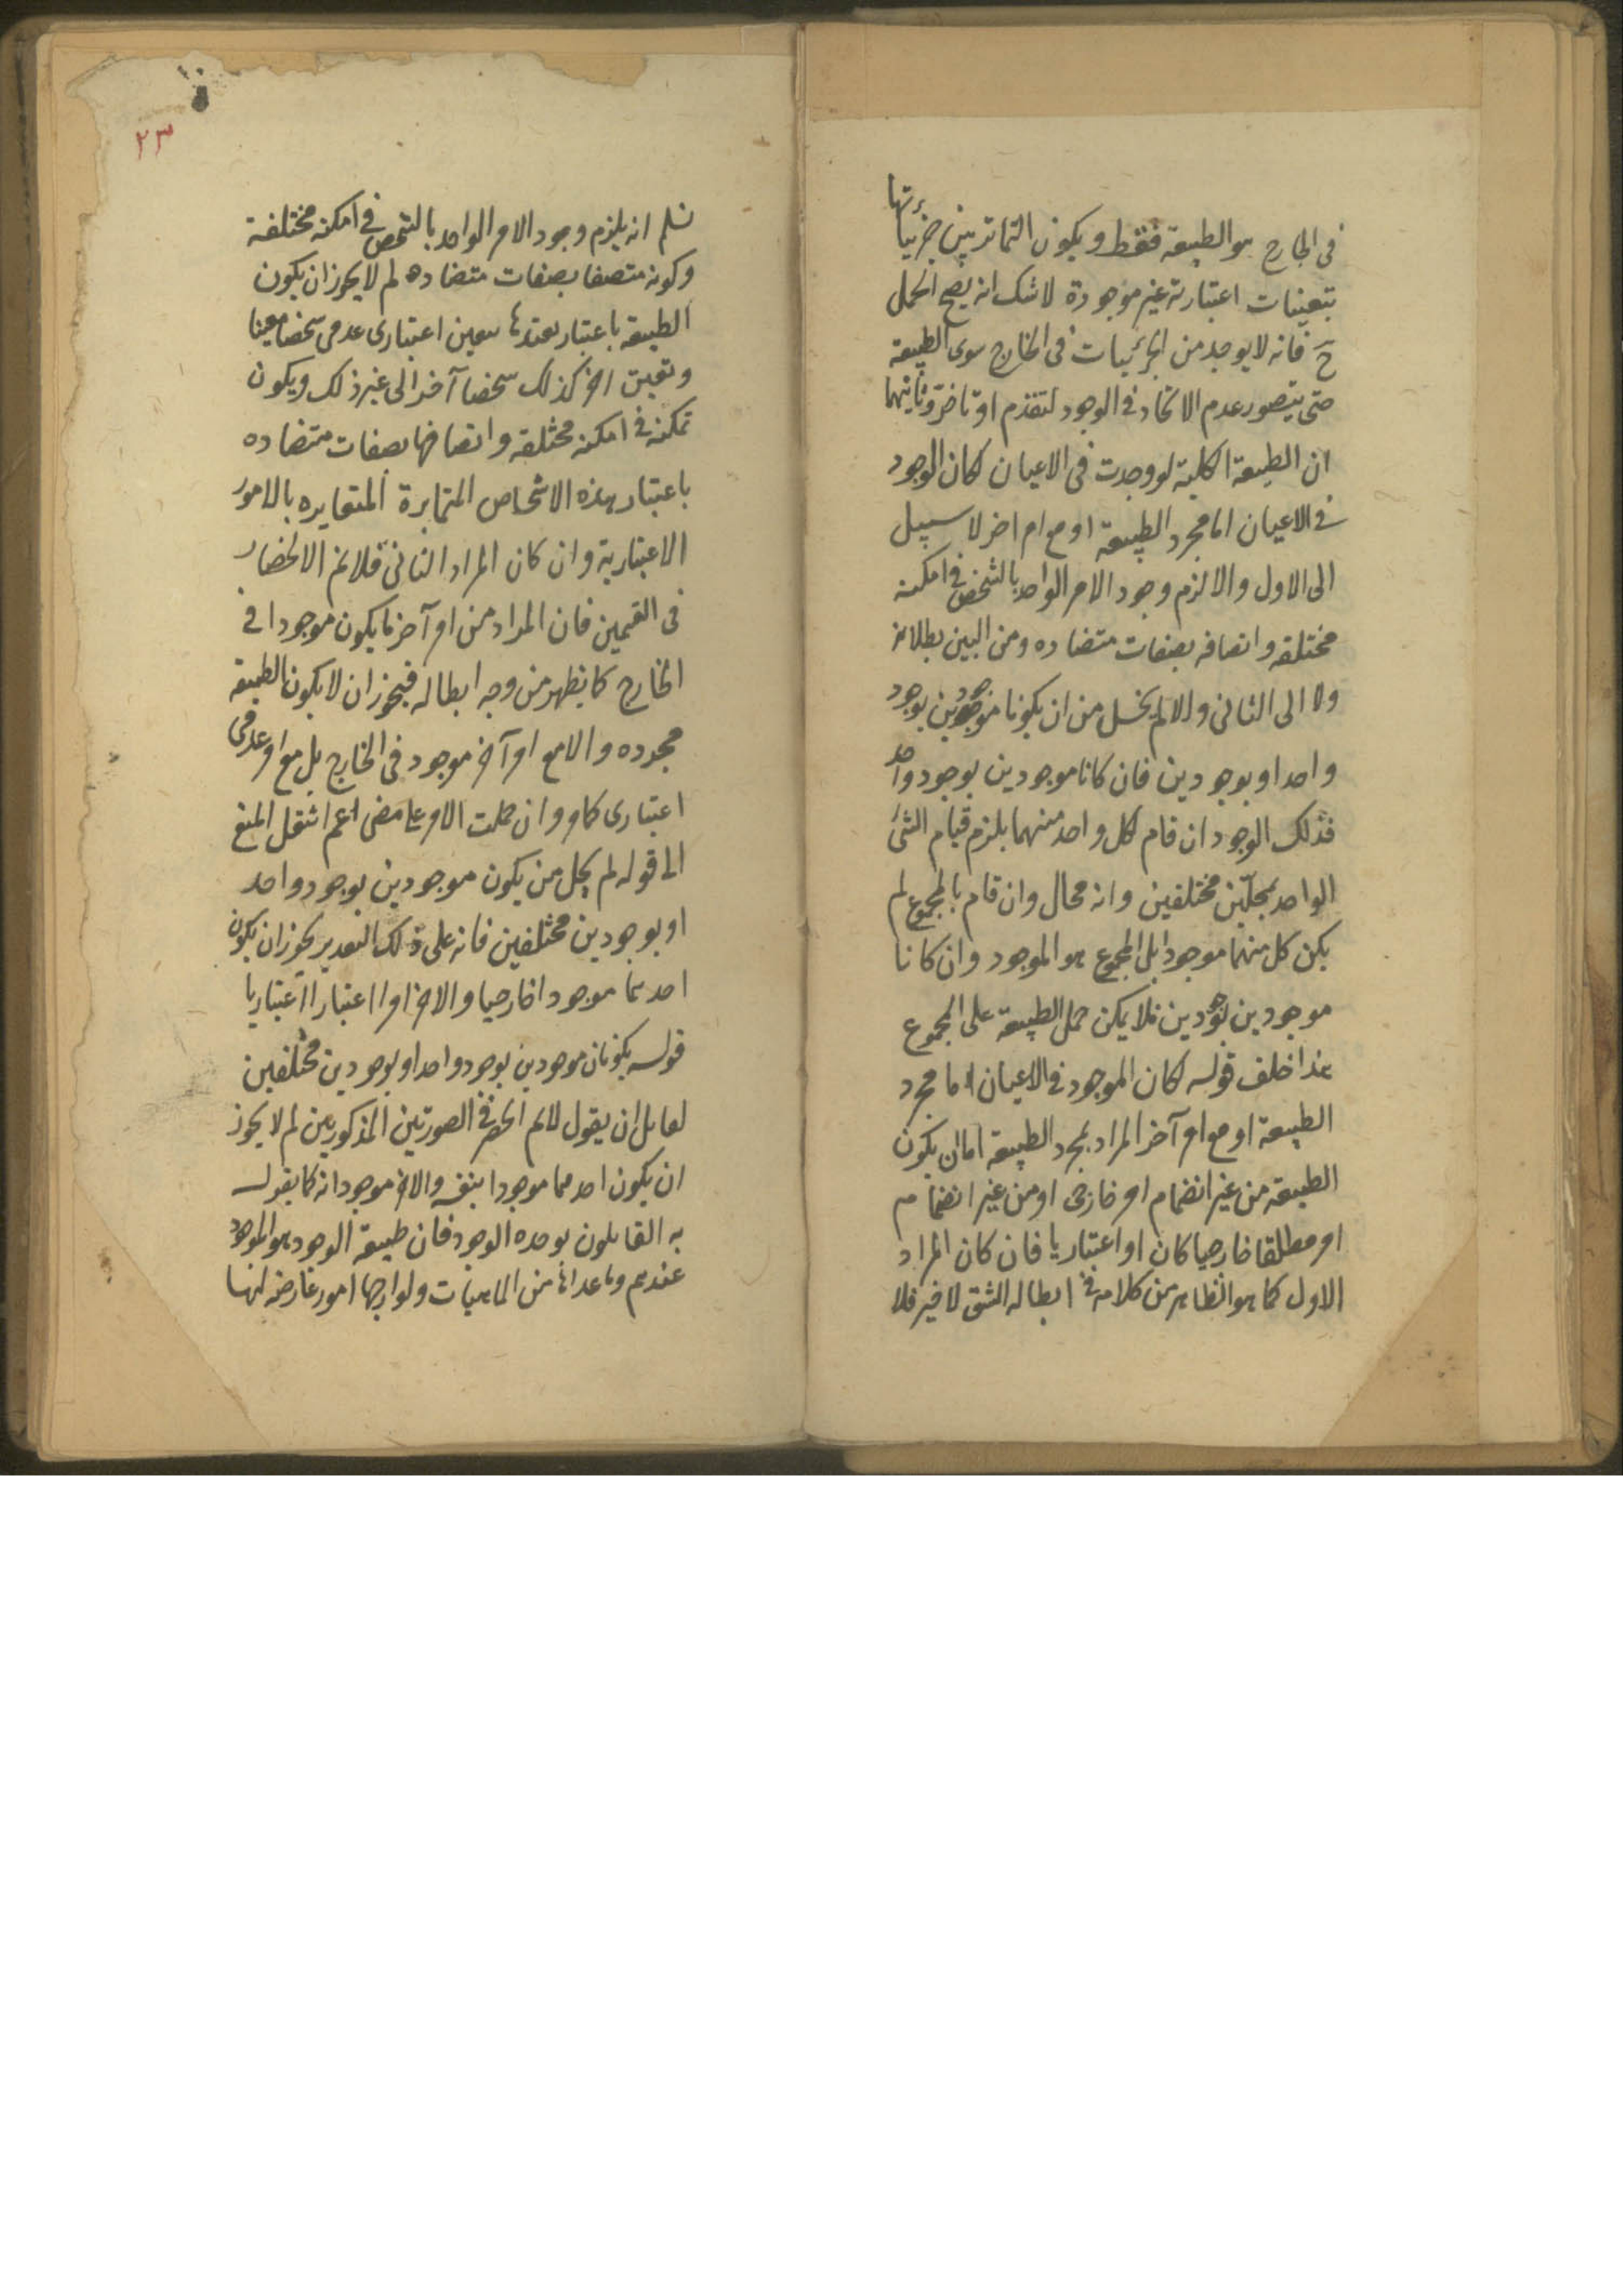 في الخارج هو الطبيعة فقط ويكون التمايز بين جزئياتها
بتعينات اعتبارية غير موجودة لا شك انه يصح الحمل
ح فانه لا يوجد من الجزئيات في الخارج سوى الطبيعة
حتى يتصور عدم الاتحاد في الوجود لتقدم او تاخر وثانيهما
ان الطبيعة الكلية لو وجدت في الاعيان لكان الموجود
في الاعيان اما مجرد الطبيعة او مع امر اخر لا سبيل
الى الاول والا لزم وجود الامر الواحد بالشخص في امكنة
مختلفه واتصافه بصفات متضاده ومن البين بطلانه
ولا الى الثاني والا لم يخل من ان يكونا موجودين بوجود
واحد او بوجودين فان كانا موجودين بوجود واحد
فذلك الوجود ان قام لكل واحد منهما يلزم قيام الشئ
الواحد بمحلين مختلفين وانه محال وان قام بالمجموع لم
يكن كل منهما موجودا بل المجموع هو الموجود وان كانا
موجودين بوجودين فلا يمكن حمل الطبيعة على المجموع
هذا خلف قوله لكان الموجود في الاعيان اما مجرد
الطبيعة او مع امر آخر المراد بمجرد الطبيعة اما ان يكون
الطبيعة من غير انضمام امر خارجى او من غير انضمام
امر مطلقا خارجيا كان او اعتباريا فان كان المراد
الاول كما هو الظاهر من كلامه في ابطاله الشق لاخير فلا
٢٣
نسلم انه يلزم وجود الامر الواحد بالشخص في امكنة مختلفة
وكونه متصفا بصفات متضاده لم لا يجوز ان يكون
الطبيعة باعتبار تقيدها بتعين اعتبارى عدمى شخصا معينا
وتعين اخر كذلك شخصا آخر الى غير ذلك ويكون
تمكنه في امكنه مختلفه واتصافها بصفات متضاده
باعتبار هذه الاشخاص المتمايزة المتغايره بالامور
الاعتبارية وان كان المراد الثاني فلا نم الانحصار
في القسمين فان المراد من امر آخر ما يكون موجودا في
الخارج كما يظهر من وجه ابطاله فيجوز ان لا يكون الطبيعة
مجرده والا مع امر آخر موجود في الخارج بل مع امر عدمى
اعتبارى كما مر وان حملت الامر على معنى اعم انتقل المنع
الى قوله لم يخل من يكون موجودين بوجود واحد
او بوجودين مختلفين فانه على ذلك التقدير يجوز ان يكون
احدهما موجودا خارجيا والاخر امرا اعتبارا اعتباريا
قوله يكونان موجودين بوجود واحد او بوجودين مختلفين
لقايل ان يقول لا نم الحصر في الصورتين المذكورتين لم لا يجوز
ان يكون احدهما موجودا بنفسه والاخر موجودا به كما يقوله
به القايلون بوحده الوجود فان طبيعة الوجود هو الموجود
عندهم وما عداها من الماهيات ولوازمها امور عارضه لها